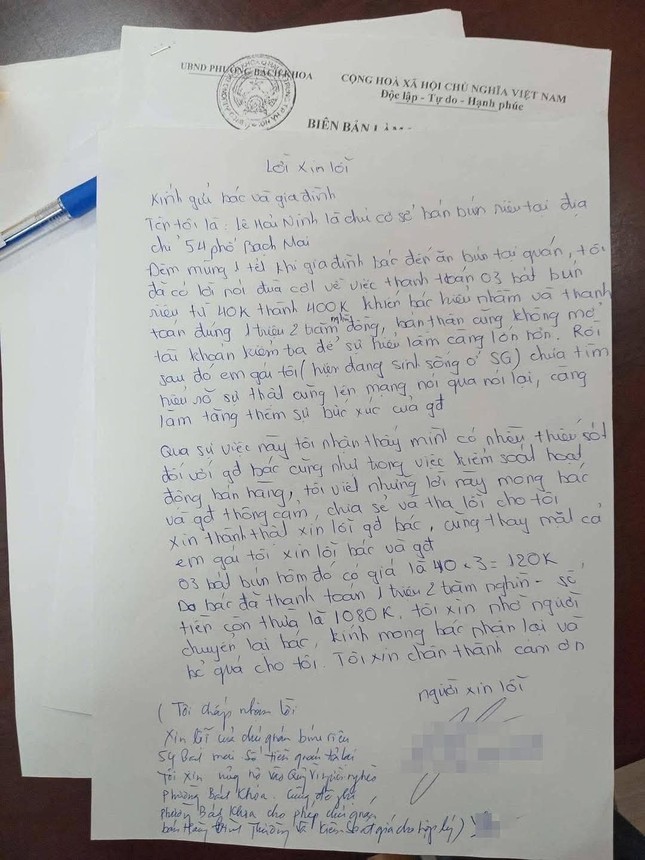 UBND PHƯỜNG BÁCH KHOA
CỘNG HOÀ XÃ HỘI CHỦ NGHĨA VIỆT NAM
Độc lập - Tự do - Hạnh phúc
BIÊN BẢN LÀM
Lời xin lỗi
Kính gửi bác và gia đình
Tên tôi là: Lê Hải Ninh là chủ cơ sở bán bún riêu tại địa
chỉ 54 phố Bạch Mai
Đêm mùng 1 tết khi gia đình bác đến ăn bún tại quán, tôi
đã có lời nói đùa cợt về việc thanh toán 03 bát bún
riêu từ 40K thành 400K khiến bác hiểu nhầm và thanh
toán đúng 1 triệu 2 trăm nghìn đồng, bản thân cũng không mở
tài khoản kiểm tra để sự hiểu lầm càng lớn hơn. Rồi
sau đó em gái tôi (hiện đang sinh sống ở SG) chưa tìm
hiểu rõ sự thật cũng lên mạng nói qua nói lại, càng
làm tăng thêm sự bức xúc của gđ
Qua sự việc này tôi nhận thấy mình có nhiều thiếu sót
đối với gđ bác cũng như trong việc kiểm soát hoạt
động bán hàng, tôi viết những lời này mong bác
và gđ thông cảm, chia sẻ và tha lỗi cho tôi
Xin thành thật xin lỗi gđ bác, cũng thay mặt cả
em gái tôi xin lỗi bác và gđ
03 bát bún hôm đó có giá là 40 x 3 = 120K
Do bác đã thanh toán 1 triệu 2 trăm nghìn - số
tiền còn thừa là 1080K, tôi xin nhờ người
chuyển lại bác, kính mong bác nhận lại và
bỏ qua cho tôi. Tôi xin chân thành cảm ơn
người xin lỗi
( Tôi chấp nhận lời
xin lỗi của chủ quán bún riêu
54 Bạch Mai số tiền quán trả lại
Tôi xin ủng hộ vào Quỹ Vì người nghèo
phường Bách Khoa. Cũng đề nghị
phường Bách Khoa cho phép chủ quán
bán hàng bình thường và kiểm soát giá cho hợp lý )